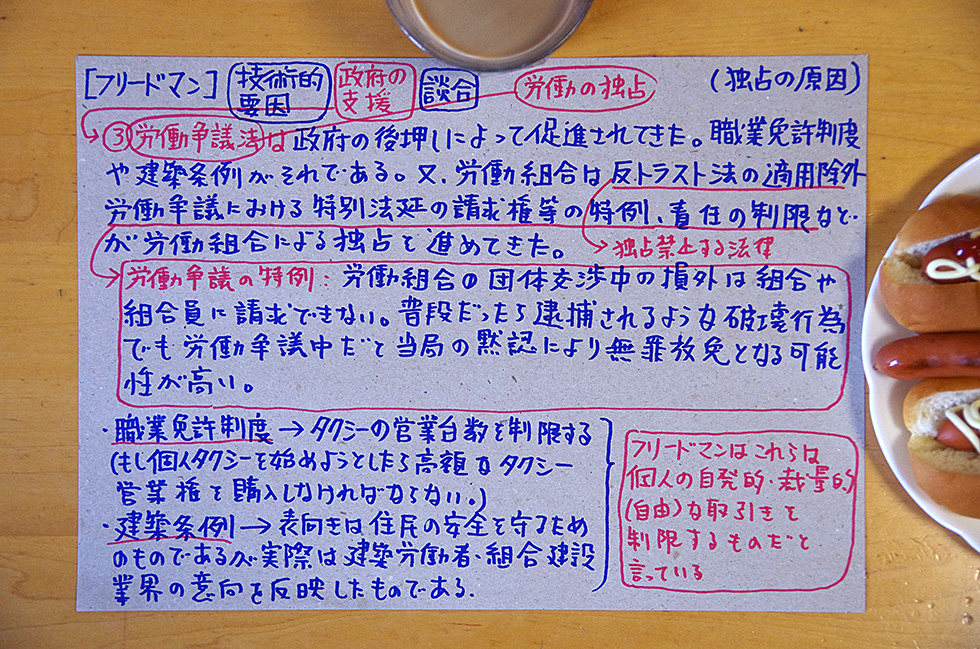 [フリードマン] 技術的要因 政府の支援 談合 労働の独占 (独占の原因)
③労働争議法は政府の後押しによって促進されてきた。職業免許制度
や建築条例がそれである。又、労働組合は反トラスト法の適用除外
労働争議における特別法廷の請求権等の特例、責任の制限などで
が労働組合による独占を進めてきた。 独占禁止する法律
労働争議の特例:労働組合の団体交渉中の損外は組合や
組合員に請求できない。普段だったら逮捕されるような破壊行為
でも労働争議中だと当局の黙認により無罪放免となる可能
性が高い。
・職業免許制度→タクシーの営業台数を制限する
(もし個人タクシーを始めようとしたら高額なタクシー
営業権を購入しなければならない。)
・建築条例→表向きは住民の安全を守るため
のものであるが実際は建築労働者・組合建設
業界の意向を反映したものである.
フリードマンはこれらは
個人の自発的・裁量的
(自由)な取引きを
制限するものだと
言っている